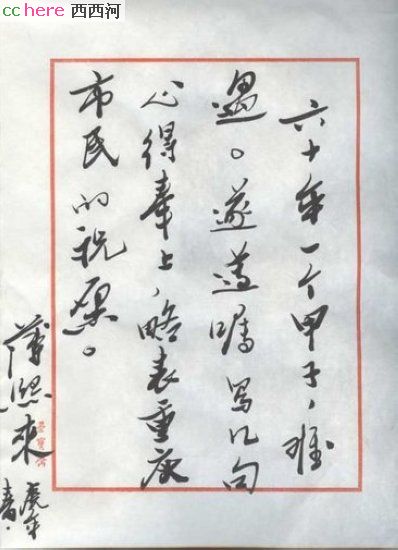 cchere 西西河
六十年一个甲子，难
遇。遂遵嘱写几句
心得奉上，略表重庆
市民的祝愿。
薄熙来
虎年
春.